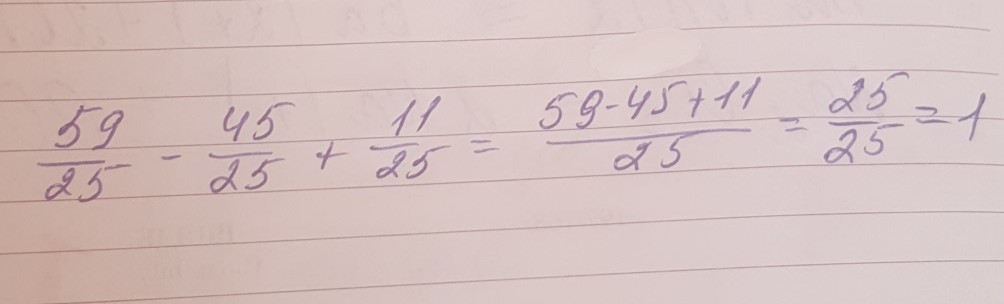 59/25 - 45/25 + 11/25 = 59-45+11/25 = 25/25 = 1